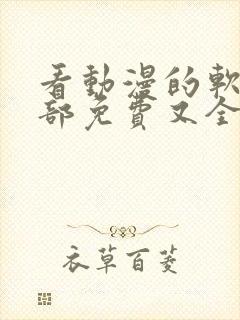 看動漫的軟
部免費又全
衣草百菱